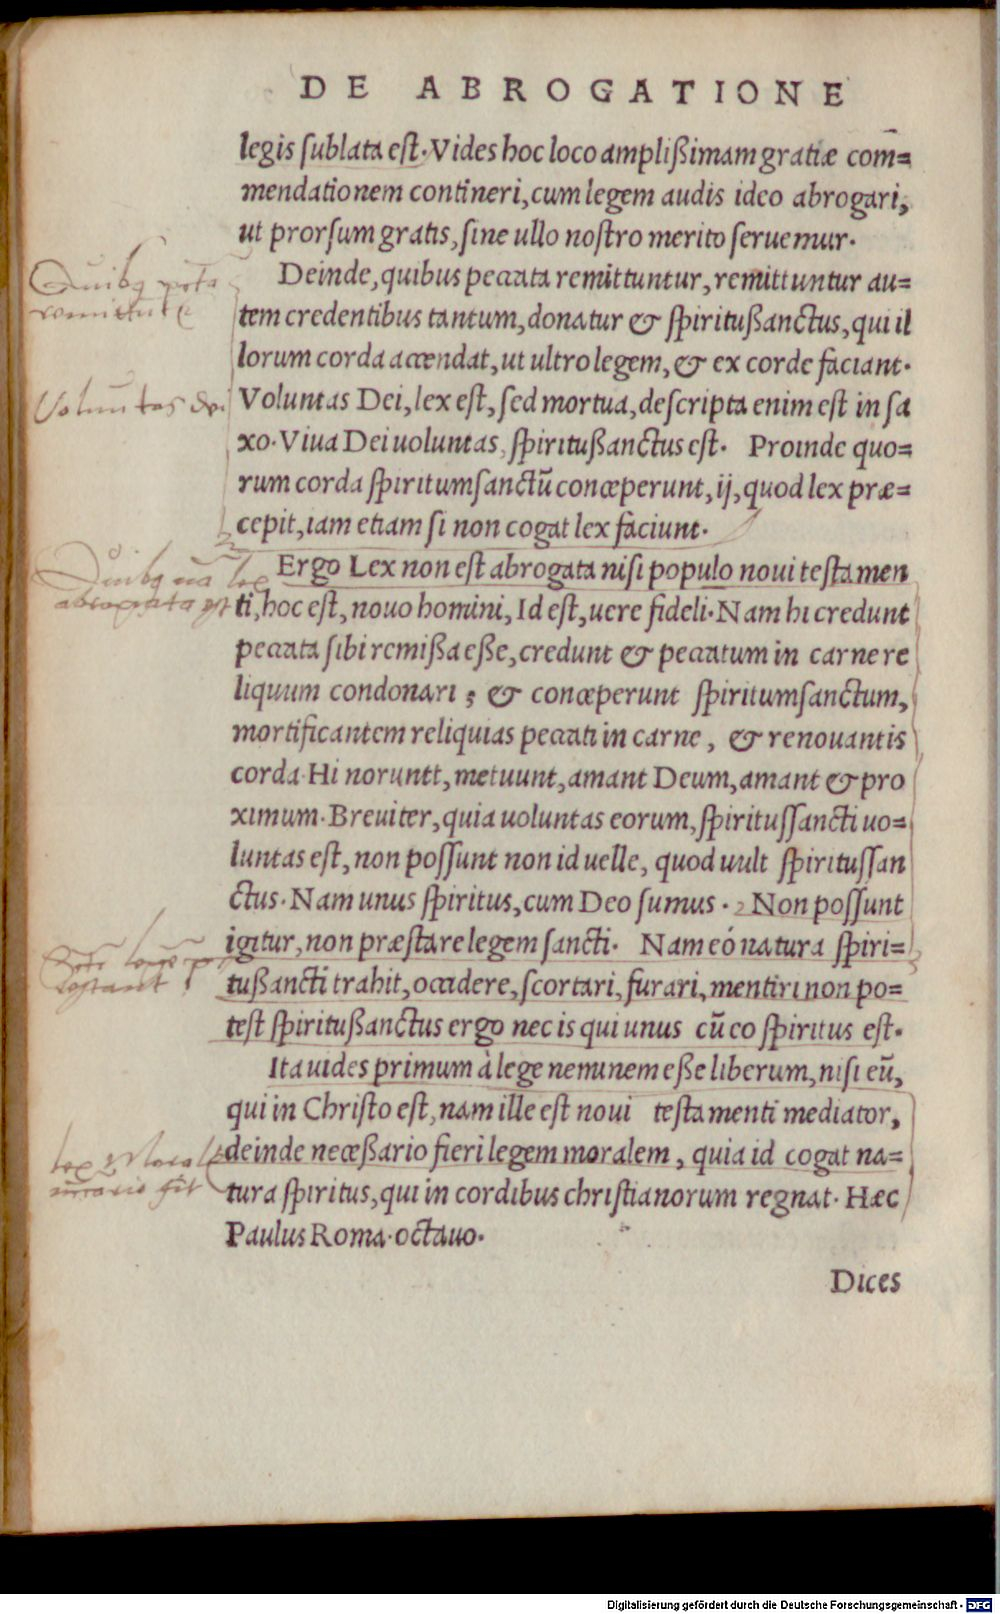 DE ABROGATIONE
legis ſublata eſt. Vides hoc loco ampliſsimam gratiæ com̄=
mendationem contineri, cum legem audis ideo abrogari,
ut prorſum gratis, ſine ullo noſtro merito ſeruemur.
Quibꝫ
Deinde, quibus peccata remittuntur, remittuntur au=
tem credentibus tantum, donatur & ſpirituſsanctus, qui il
lorum corda accendat, ut ultro legem, & ex corde faciant.
Voluntas dei
Voluntas Dei, lex eſt, ſed mortua, deſcripta enim eſt in ſa
xo. Viua Dei uoluntas, ſpirituſsanctus eſt. Proinde quo=
rum corda ſpiritumſanctū conceperunt, ij, quod lex præ=
cepit, iam etiam ſi non cogat lex faciunt.
Quibꝫ lex
abrogata est
Ergo Lex non eſt abrogata niſi populo noui teſtamen
ti, hoc eſt, nouo homini, Id eſt, uere fideli. Nam hi credunt
peccata ſibi remiſsa eſse, credunt & peccatum in carne re
liquum condonari ; & conceperunt ſpiritumſanctum,
mortificantem reliquias peccati in carne, & renouantis
corda. Hi noruntt, metuunt, amant Deum, amant & pro
ximum. Breuiter, quia uoluntas eorum, ſpirituſſancti uo=
luntas eſt, non poſſunt non id uelle, quod uult ſpirituſſan
ctus. Nam unus ſpiritus, cum Deo ſumus. Non poſſunt
igitur, non præſtare legem ſancti. Nam eó natura ſpiri=
tuſsancti trahit, occidere, ſcortari, furari, mentiri non po=
teſt ſpirituſsanctus ergo nec is qui unus cū eo ſpiritus eſt.
Ita uides primum à lege neminem eſse liberum, niſi eū,
qui in Chriſto eſt, nam ille eſt noui teſtamenti mediator,
lex Moral
deinde neceſsario fieri legem moralem, quia id cogat na=
fit
tura ſpiritus, qui in cordibus chriſtianorum regnat. Hæc
Paulus Roma. octauo.
Dices
Digitalisierung gefördert durch die Deutsche Forschungsgemeinschaft - DFG